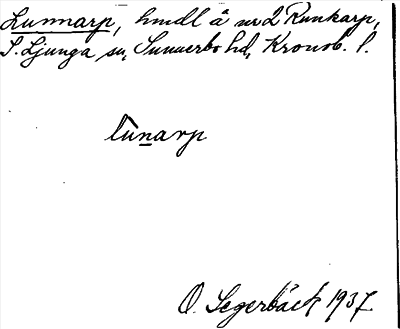 Lunnarp, hmdl å nr 2 Runkarp,
S. Ljunga sn, Sunnerbo hd, Kronob. l.
lùnarp
O. Segerbäck 1937.